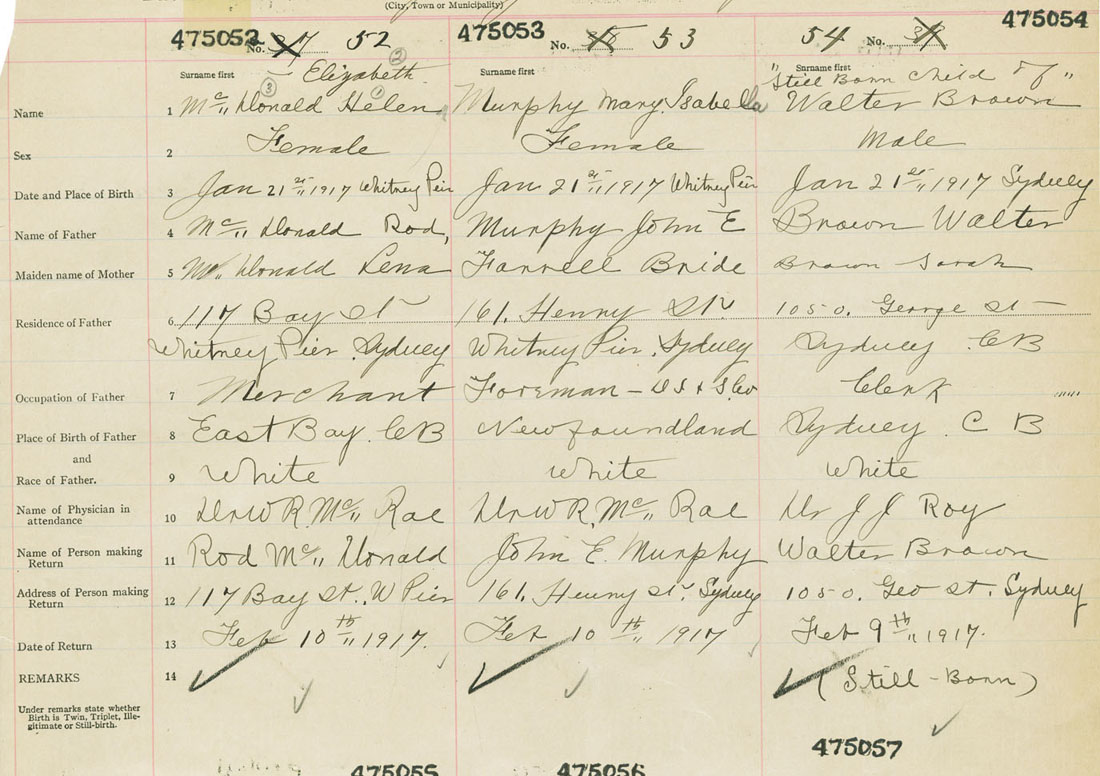 (City, Town or Municipality)
475052 No. 37 52
475053 No. 53
54 No. 475054
Surname first Surname first Surname first
Elizabeth "Still Born Child of"
Name 1 Mc,, Donald Helen Murphy Mary Isabella Walter Brown
Sex 2 Female Female Male
Date and Place of Birth 3 Jan 21st,, 1917 Whitney Pier Jan 21st,, 1917 Whitney Pier Jan 21st,, 1917 Sydney
Name of Father 4 Mc,, Donald Rod, Murphy John E Brown Walter
Maiden name of Mother 5 Mc,, Donald Lena Farrell Bride Brown Sarah
Residence of Father 6 117 Bay St 161. Henry St. 1050. George St
Whitney Pier. Sydney Whitney Pier. Sydney Sydney CB
Occupation of Father 7 Merchant Foreman - D I & S Co Clerk
Place of Birth of Father 8 East Bay. CB Newfoundland Sydney. C B
and
Race of Father. 9 White White White
Name of Physician in
attendance 10 Dr W R. Mc,, Rae Dr W R. Mc,, Rae Dr J J Roy
Name of Person making
Return 11 Rod Mc,, Donald John E. Murphy Walter Brown
Address of Person making
Return 12 117 Bay St. W Pier 161. Henry St. Sydney 1050. Geo St. Sydney
Date of Return 13 Feb 10th,, 1917. Feb 10th,, 1917 Feb 9th,, 1917.
REMARKS 14 (Still-Born)
Under remarks state whether
Birth is Twin, Triplet, Ille-
gitimate or Still-birth.
475055 475056 475057